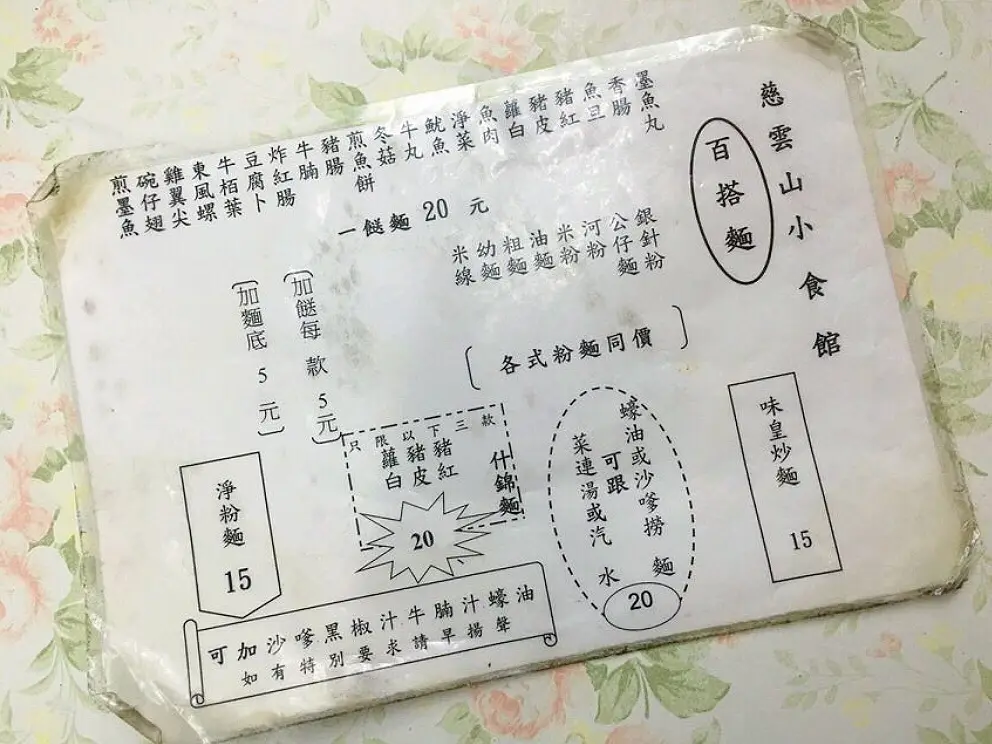 慈雲山小食館
百搭麵
墨魚丸
香腸
魚旦
豬紅
豬皮
蘿白
魚肉
淨菜
魷魚
牛丸
冬菇
煎魚餅
豬腸
牛腩
炸紅腸
豆腐卜
牛栢葉
東風螺
雞翼尖
碗仔翅
煎墨魚
一餸麵 20 元
銀針粉
公仔麵
河粉
米粉
油麵
粗麵
幼麵
米線
各式粉麵同價
(加餸每款 5元)
(加麵底 5元)
味皇炒麵 15
蠔油或沙嗲撈麵
可跟
菜連湯或汽水
20
什錦麵
只限以下三款
豬紅
豬皮
蘿白
20
淨粉麵 15
可加沙嗲黑椒汁牛腩汁蠔油
如有特別要求請早揚聲